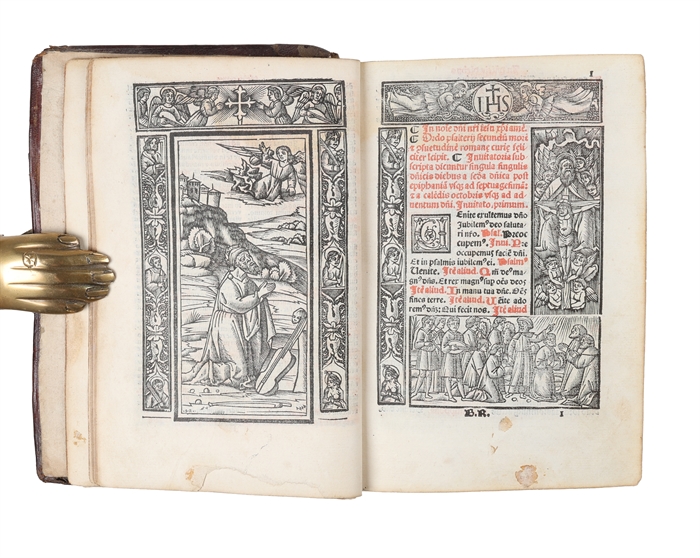 1
IHS
In noíe dñi nr̃i iesu xp̃i amē.
Ordo psalterij secundū morē
⁊ ꝯsuetudinē romane curie feli
citer īcipit. Inuitatoria sub
scripta dicuntur singula singulis
dñicis diebus a scḋa dñica post
epiphaniā vsqȝ ad septuagesimā:
⁊ a calēdis octobris vsqȝ ad ad
uentum dñi. Inuitato. primum.
Uenite exultemus dño
Jubilemꝰ deo saluta
ri nr̃o. Psal. Preoc
cupemꝰ. Inui. Pre
occupemus faciē dñi.
Et in psalmis iubilemꝰ ei. Psalmꝰ
Uenite. Itē aliud. Qm̃ deꝰ ma
gnꝰ dñs. Et rex magnꝰ sup oēs deos
Itē aliud. In manu tua dñe. Oēs
fines terre. Itē aliud. Uenite ado
remꝰ dñȝ: Qui fecit nos. Itē aliud
B.R. 1